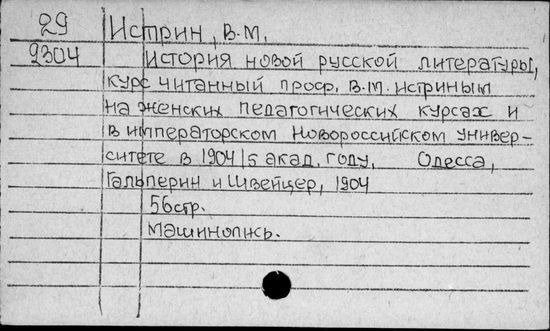 29 Истрин, В.М.
9304 История новой русской литературы,
курс читанный проф. В.М. Истриным
на женских педагогических курсах и
в императорском Новороссийском универ-
ситете в 1904/5 акад. году, Одесса,
Гальперин и Швейцер, 1904
56стр.
Машинопись.